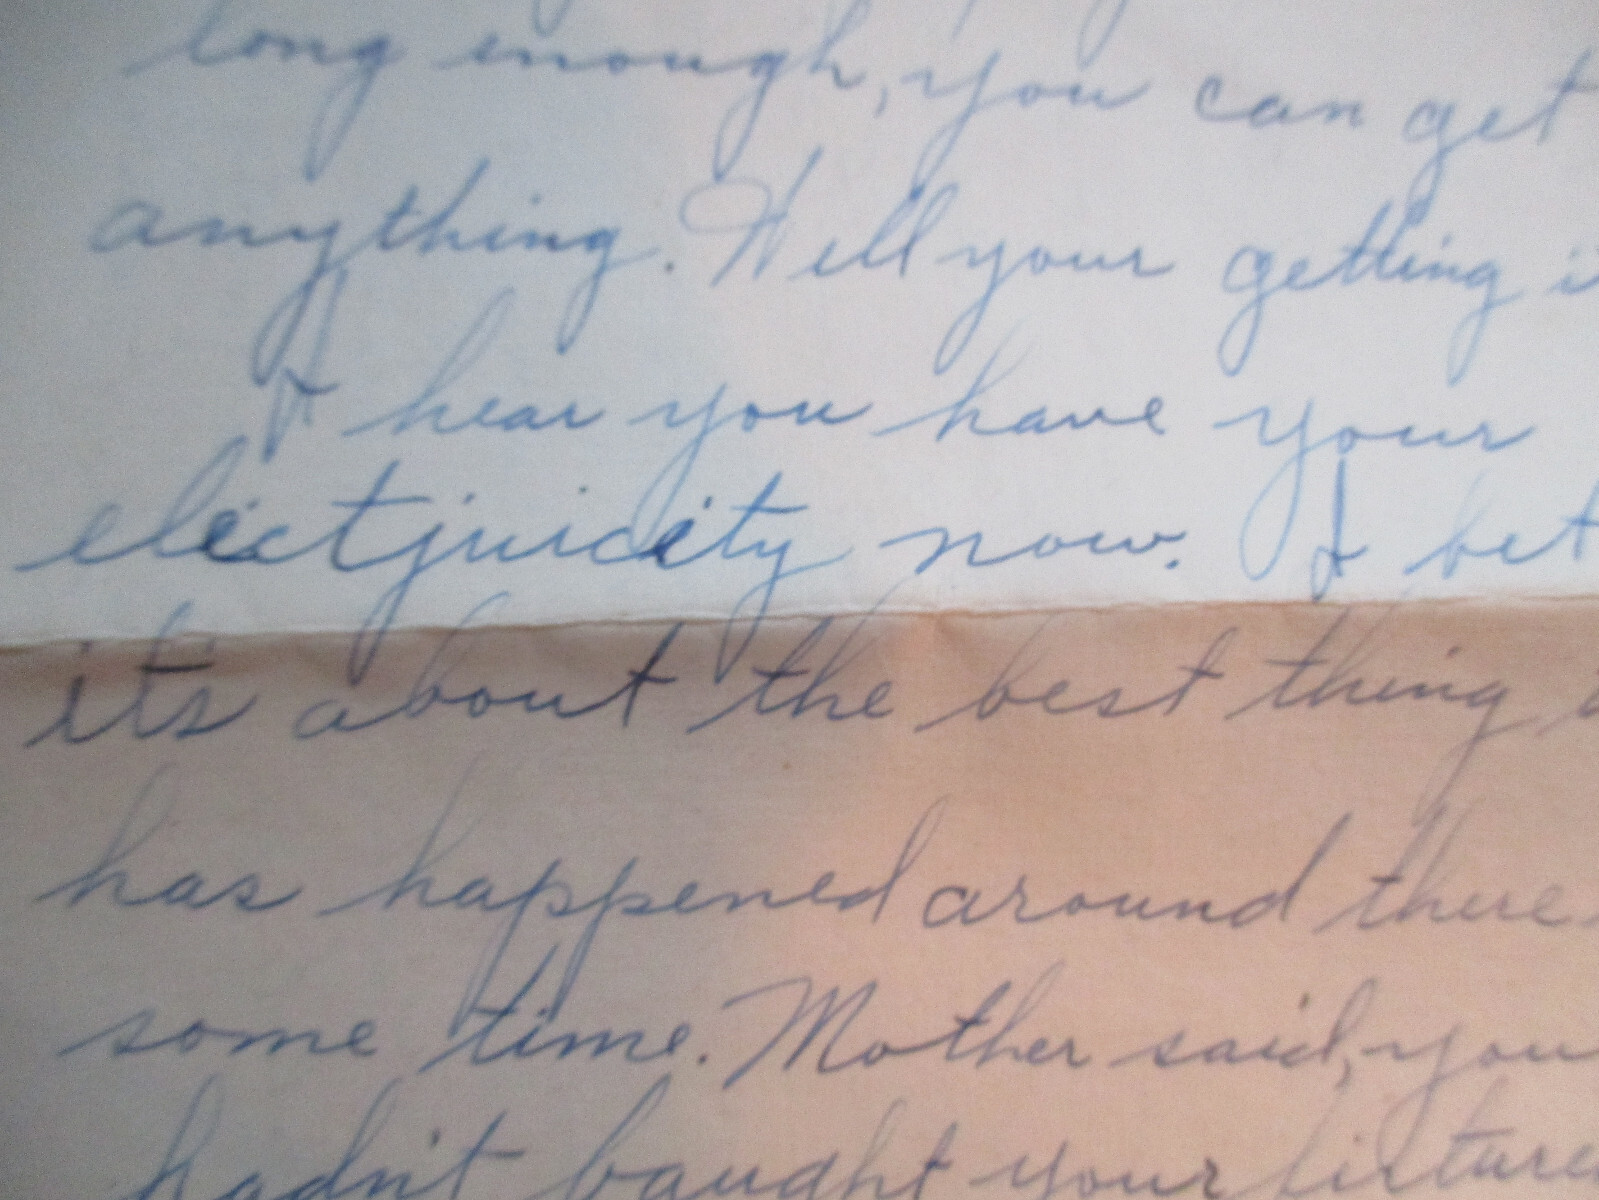 long enough, you can get
anything. Well your getting it
I hear you have your
electjuicity now. I bet
it's about the best thing
has happened around there
some time. Mother said, you
hadn't baught your fixtures